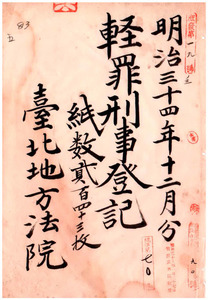 明治三十四年十二月分
軽罪刑事登記
紙数貳百四十三枚
臺北地方法院
七〇